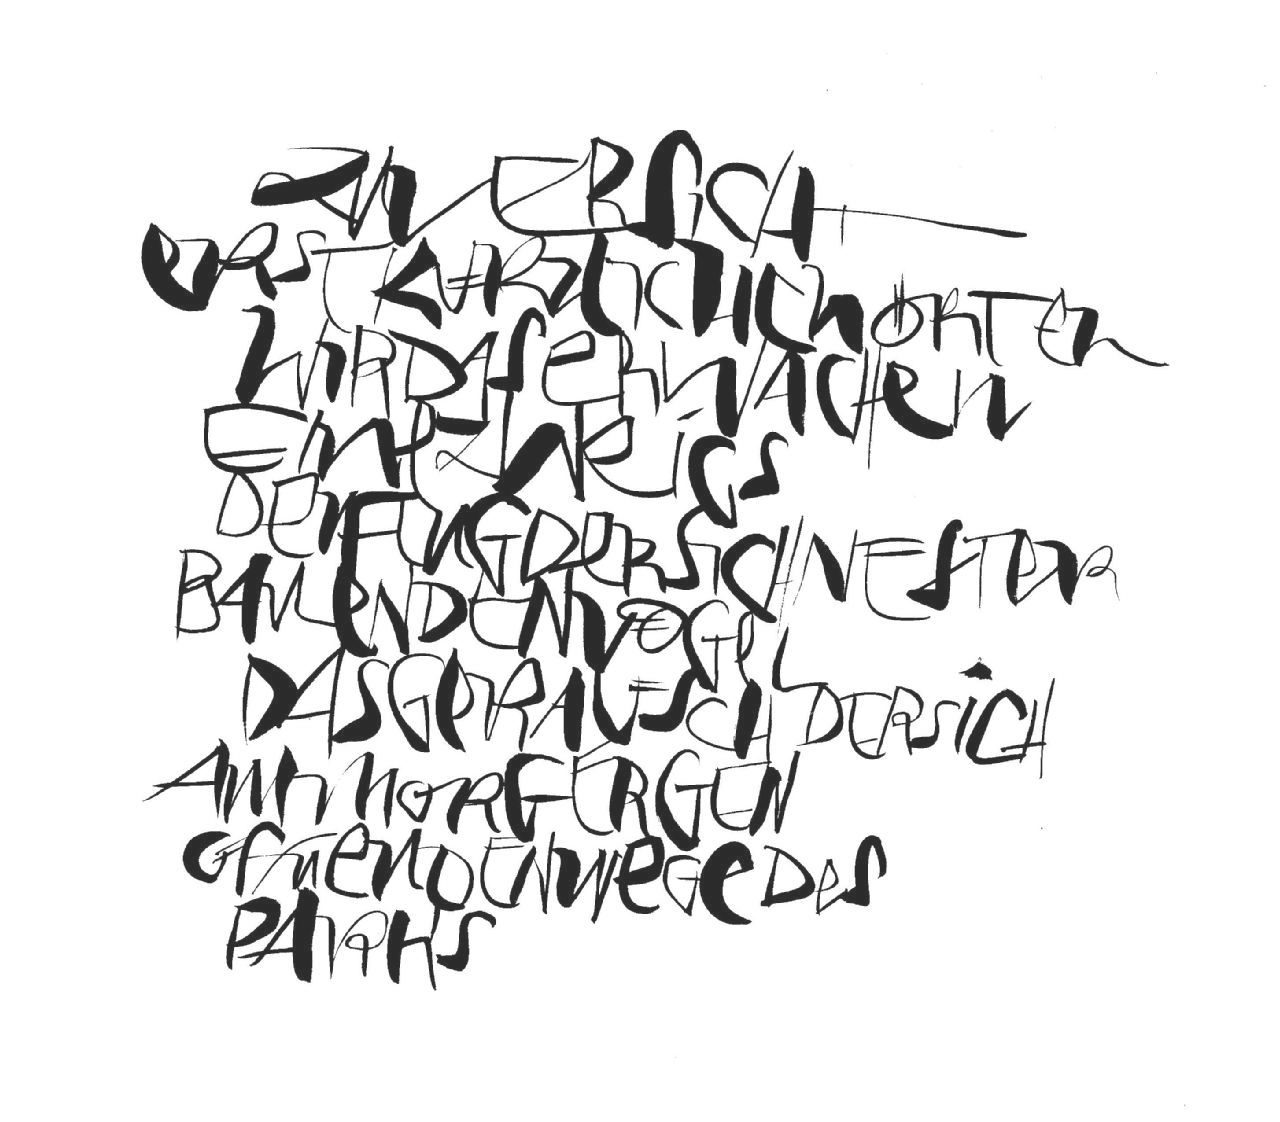 ZUVERSICHT
ERST KÜRZLICH HÖRTEN
WIR DAS ERWACHEN
EINES ZWEIGS
DEN FLUG DER SICH NESTER
BAUENDEN VÖGEL
DAS GERÄUSCH DER SICH
AM MORGEN
ÖFFNENDEN WEGE DES
PARKS